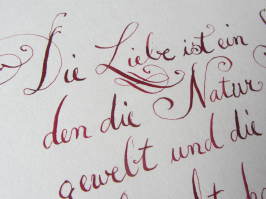 Die Liebe ist ein
den die Natur
gewebt und die